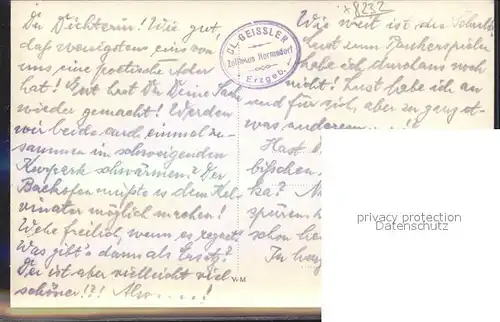 Du Dichterin! Wie gut,
daß wenigstens eins von
uns eine poetische Ader
hat! Gut hast Du Deine Sache
wieder gemacht! Werden
wir beide auch einmal zu-
sammen im schweigenden
Kurpark schwärmen? Der
Backofen müßte es dem
möglich machen!
Wehe freilich, wenn es regnet!
Was gibt's dann als Ersatz?
Der ist aber vielleicht viel
schöner!?! Also......!
CL. GEISSLER
Zollhaus Hermsdorf
Erzgeb.
8232
Wie weit ist der
Lust zum
habe ich durchaus noch
nicht! Lust habe ich an
und für sich, aber zu ganz et-
was anderem
Hast
bißchen
ka?
spüren
schon
In
W.M
privacy protection
Datenschutz